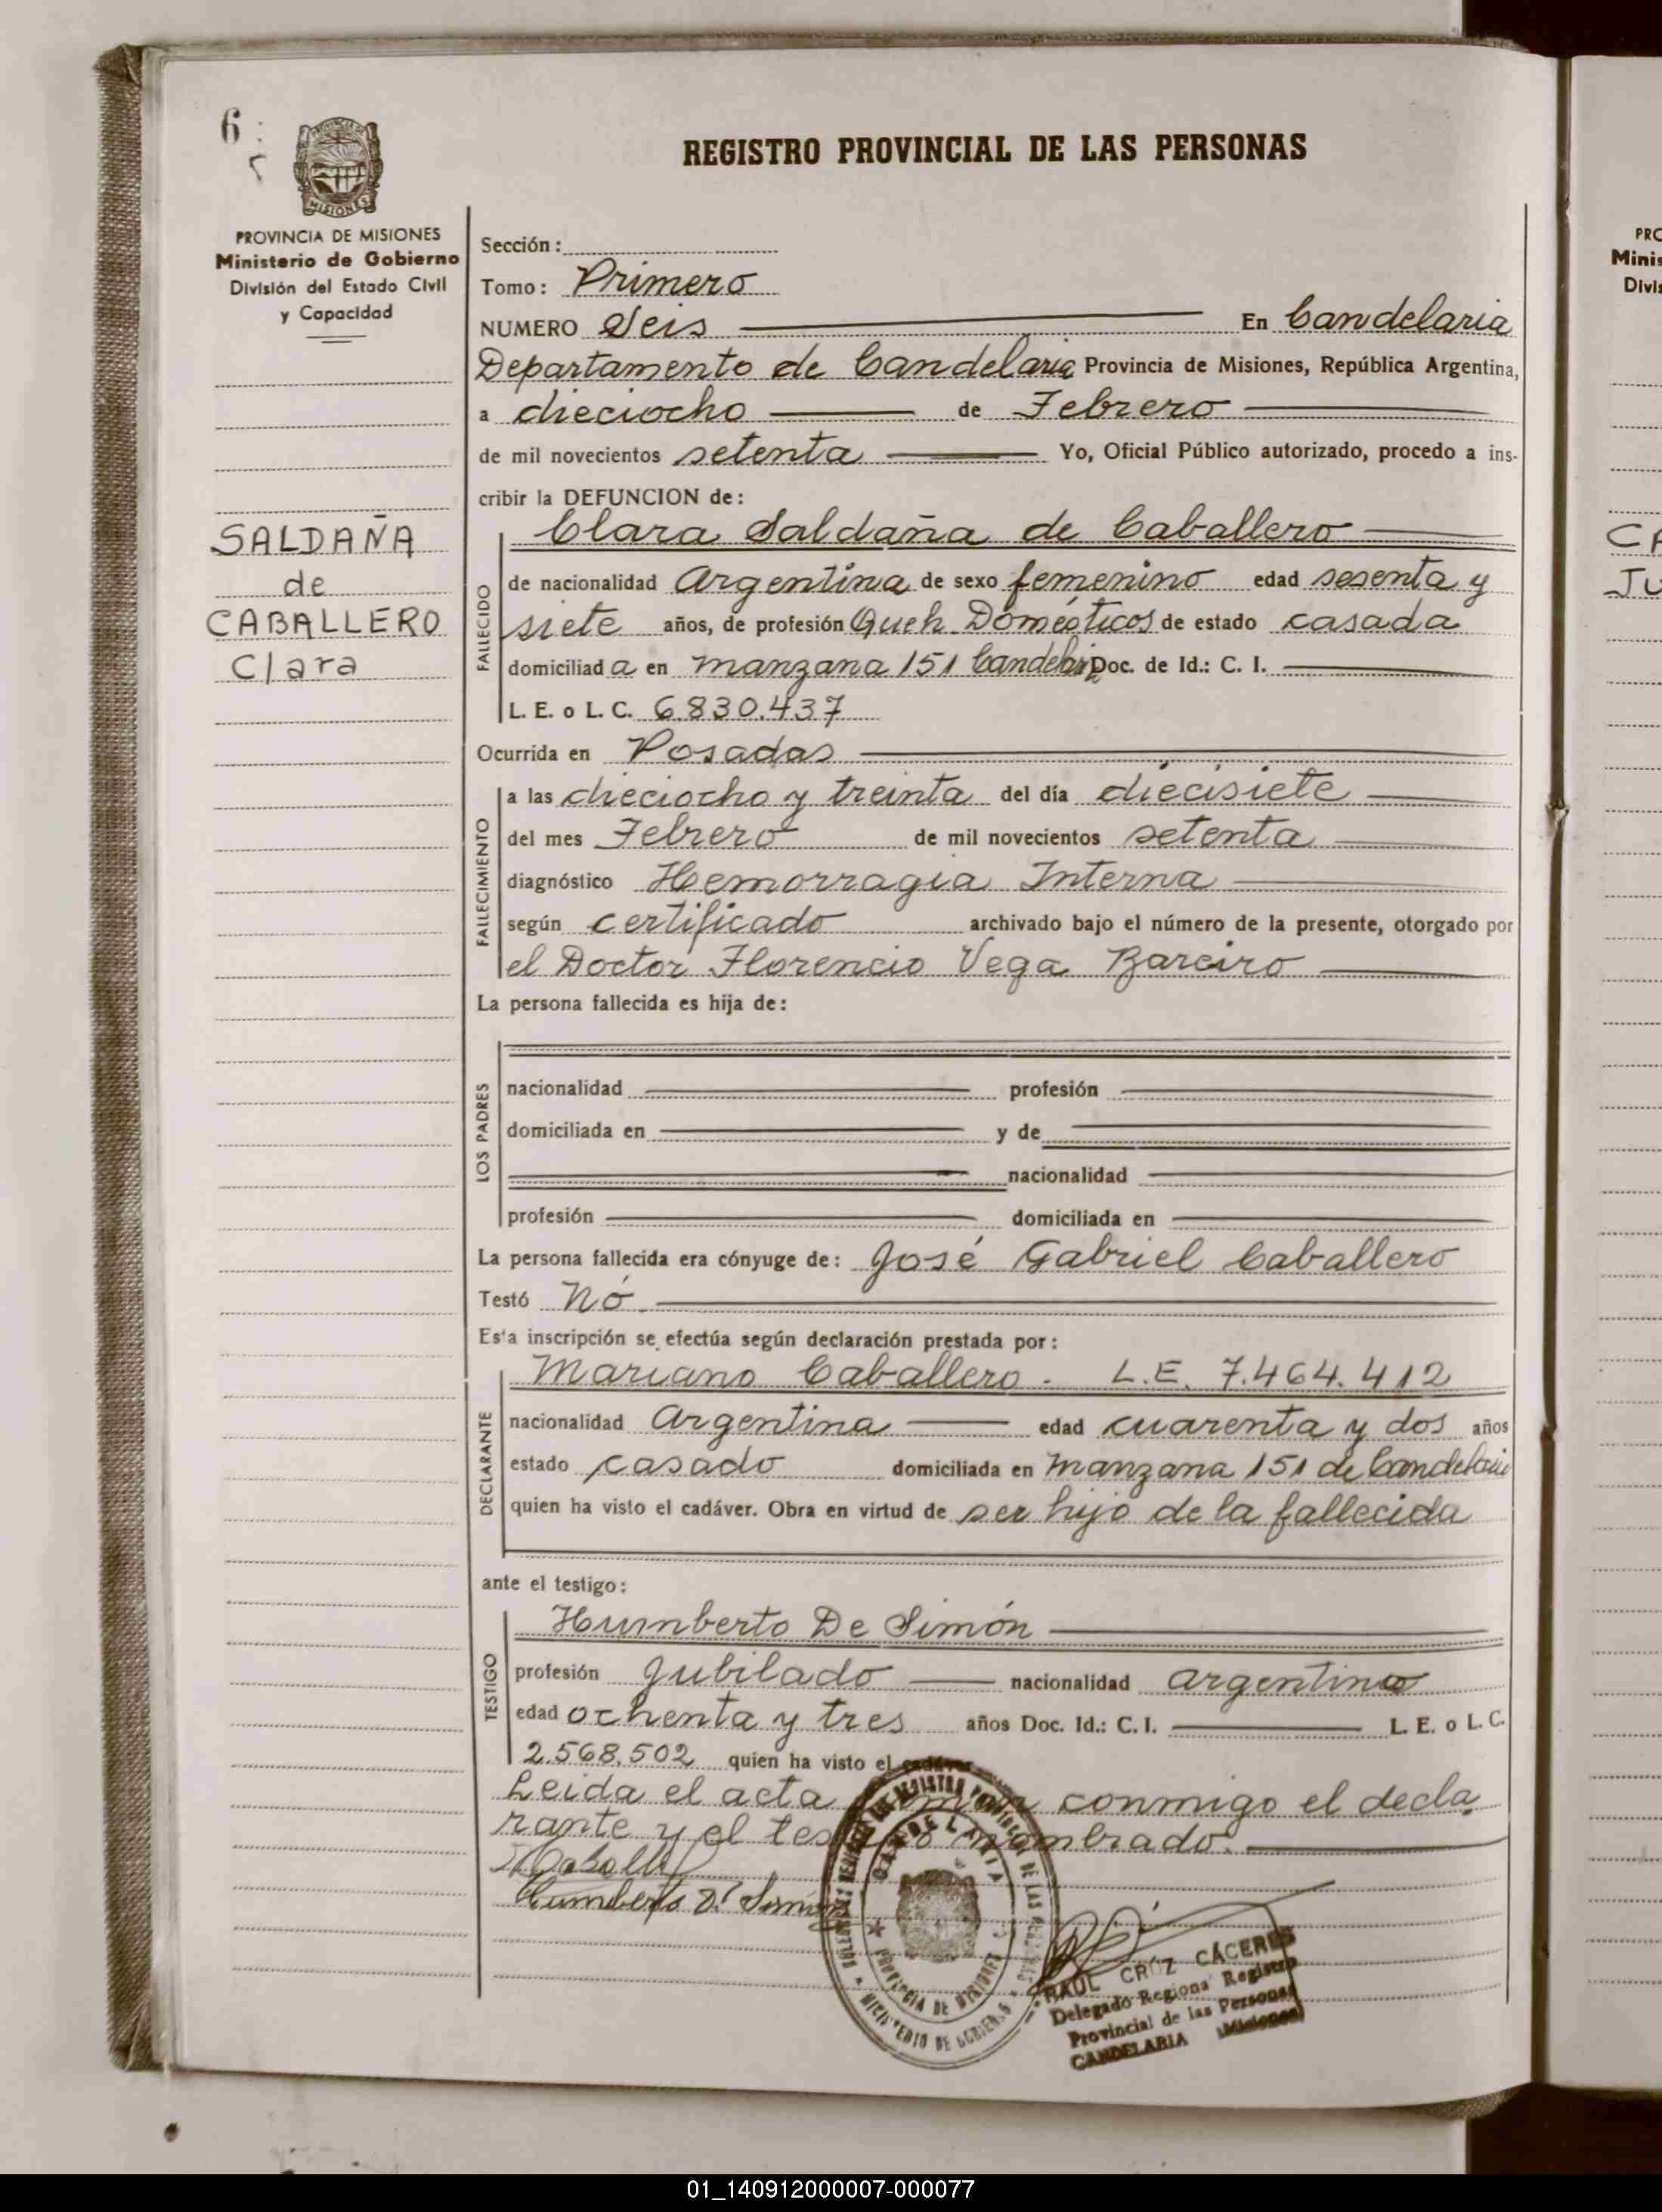 6
REGISTRO PROVINCIAL DE LAS PERSONAS
MISIONES
PROVINCIA DE MISIONES
Ministerio de Gobierno
División del Estado Civil
y Capacidad
SALDAÑA
de
CABALLERO
Clara
Sección:
Tomo: Primero
NUMERO Seis En Candelaria
Departamento de Candelaria Provincia de Misiones, República Argentina,
a dieciocho de Febrero
de mil novecientos setenta Yo, Oficial Público autorizado, procedo a ins-
cribir la DEFUNCION de:
FALLECIDO
Clara Saldaña de Caballero
de nacionalidad Argentina de sexo femenino edad sesenta y
siete años, de profesión Queh. Domésticos de estado casada
domiciliada en manzana 151 Candelaria Doc. de Id.: C. I.
L. E. o L. C. 6.830.437
Ocurrida en Posadas
FALLECIMIENTO
a las dieciocho y treinta del día diecisiete
del mes Febrero de mil novecientos setenta
diagnóstico Hemorragia Interna
según certificado archivado bajo el número de la presente, otorgado por
el Doctor Florencio Vega Bareiro
La persona fallecida es hija de:
LOS PADRES
nacionalidad profesión
domiciliada en y de
nacionalidad
profesión domiciliada en
La persona fallecida era cónyuge de: José Gabriel Caballero
Testó Nó
Esta inscripción se efectúa según declaración prestada por:
DECLARANTE
Mariano Caballero. L.E. 7.464.412
nacionalidad Argentina edad cuarenta y dos años
estado casado domiciliada en manzana 151 de Candelaria
quien ha visto el cadáver. Obra en virtud de ser hijo de la fallecida
ante el testigo:
TESTIGO
Humberto De Simón
profesión Jubilado nacionalidad argentino
edad ochenta y tres años Doc. Id.: C. I. L. E. o L. C.
2.568.502 quien ha visto el cadáver
Leida el acta firman conmigo el decla
rante y el testigo nombrado.
M Caballero
Humberto D. Simón
CANDELARIA
PROVINCIA DE MISIONES
MINISTERIO DE GOBIERNO
RAUL CRUZ CÁCERES
Delegado Regional Registro
Provincial de las Personas
CANDELARIA (Misiones)
PRO
Minis
Divis
CA
JU
01_140912000007-000077